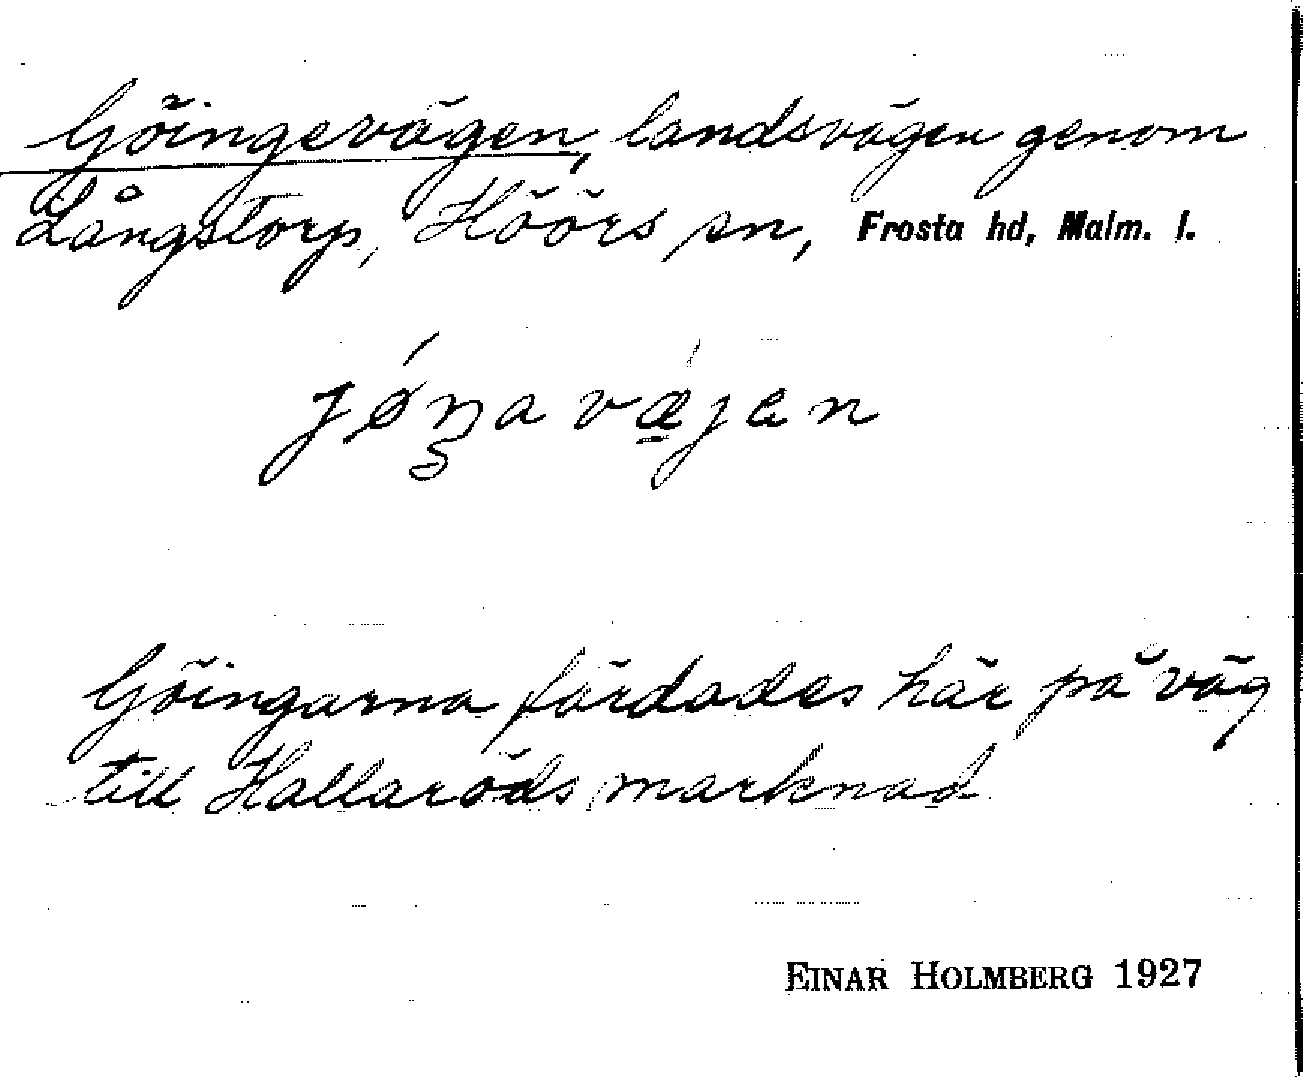 Göingevägen, landsvägen genom
Långstorp, Höörs sn, Frosta hd, Malm. l.
jǿŋa vǽjen
Göingarna färdades här på väg
till Hallaröds marknad
EINAR HOLMBERG 1927